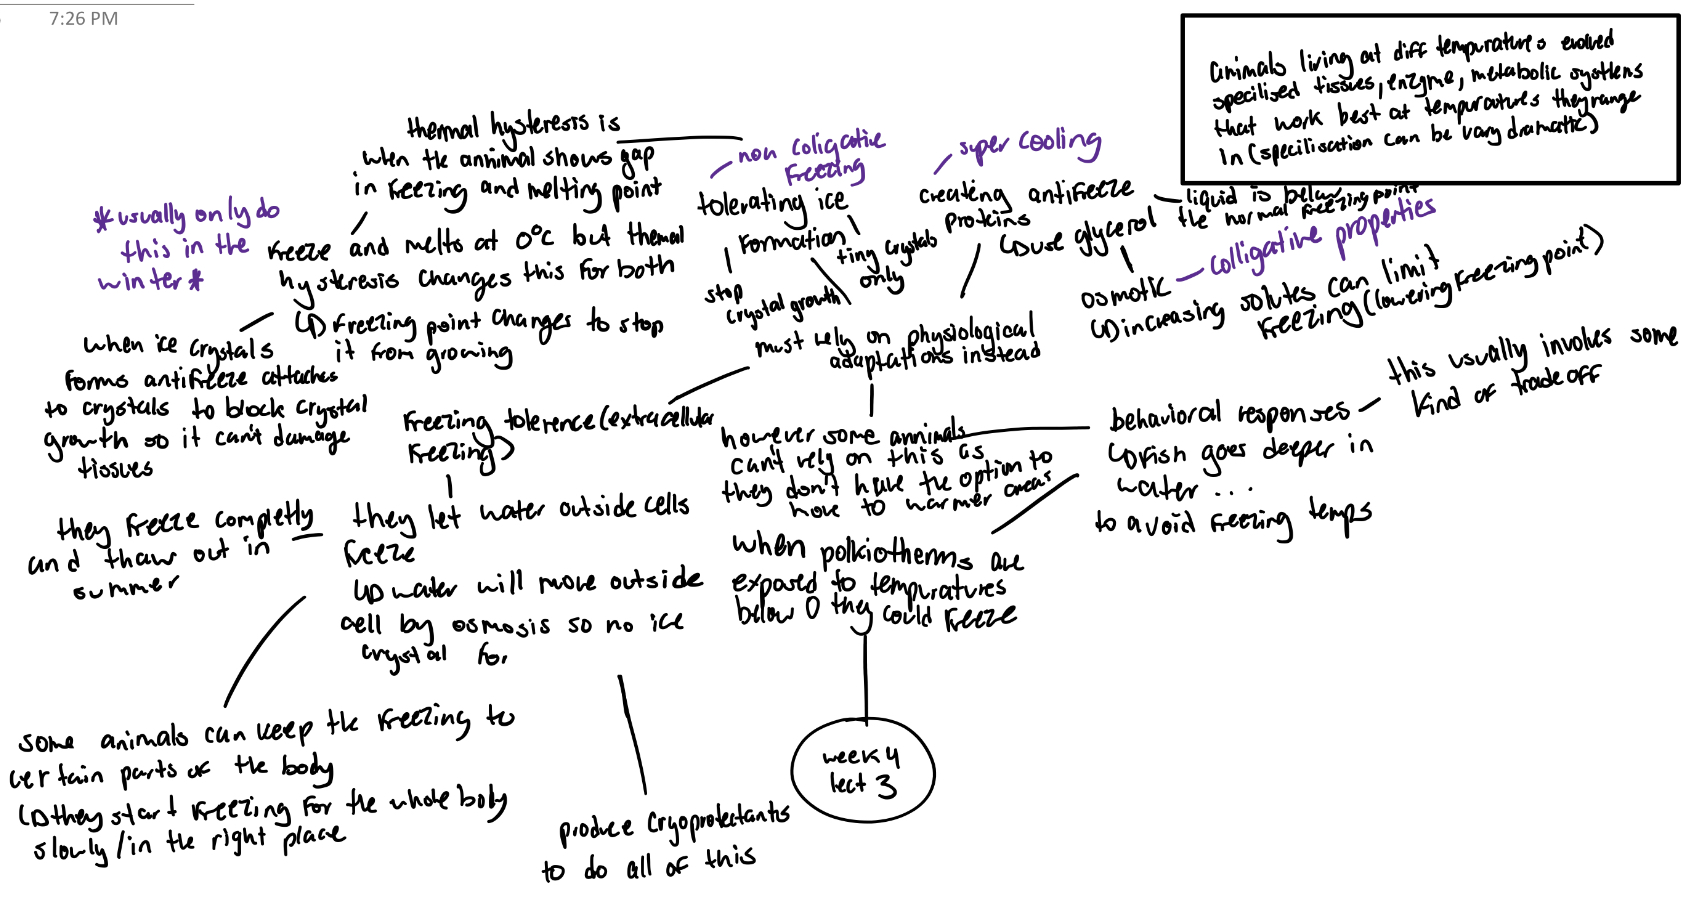 7:26 PM
animals living at diff tempuratures evolved
specilised tissues, enzyme, metabolic systems
that work best at tempuratures they range
in (specilisation can be vary dramatic)
thermal hysteresis is
when the annimal shows gap
in freezing and melting point
non coligative
freezing
super cooling
tolerating ice
formation
creating antifreeze
proteins
↳ use glycerol
liquid is below
the normal freezing point
*usually only do
this in the
winter*
freeze and melts at 0°c but themal
hysteresis changes this for both
↳ freezing point changes to stop
it from growing
stop
crystal growth
tiny crystals
only
osmotic
colligative properties
↳ increasing solutes can limit
freezing (lowering freezing point)
when ice crystals
forms antifreeze attaches
to crystals to block crystal
growth so it can't damage
tissues
must rely on physiological
adaptations instead
freezing tolerence (extracellular
freezing)
however some annimals
can't rely on this as
they don't have the option to
move to warmer areas
behavioral responses
↳ fish goes deeper in
water ...
to avoid freezing temps
this usually involves some
kind of trade off
they freeze completly
and thaw out in
summer
they let water outside cells
freeze
↳ water will move outside
cell by osmosis so no ice
crystal for
when polkiotherms are
exposed to tempuratures
below 0 they could freeze
some animals can keep the freezing to
certain parts of the body
↳ they start freezing for the whole body
slowly / in the right place
produce cryoprotectants
to do all of this
week 4
lect 3